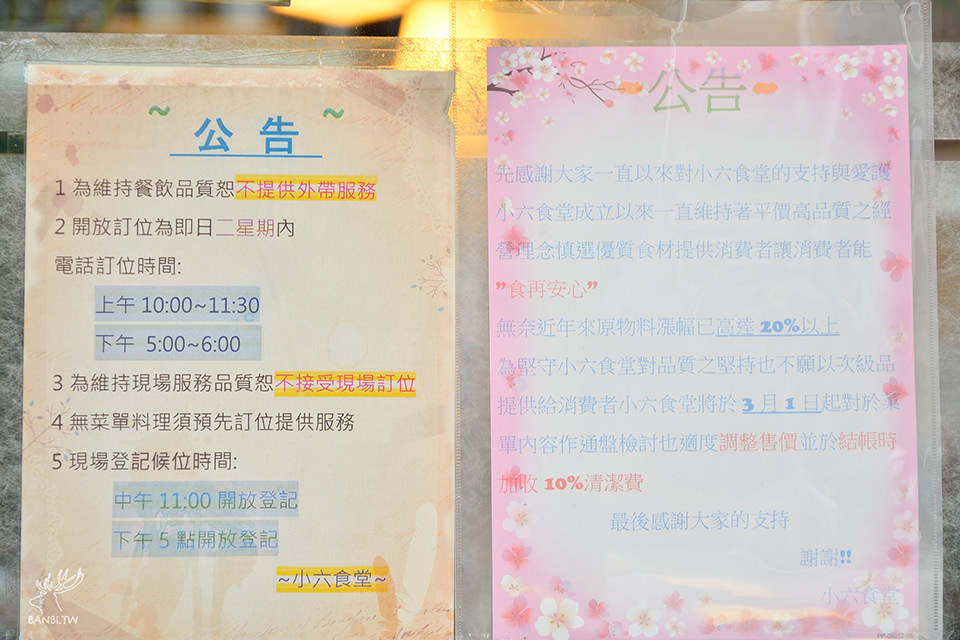 ~ 公 告 ~
1 為維持餐飲品質恕不提供外帶服務
2 開放訂位為即日二星期內
電話訂位時間:
上午 10:00~11:30
下午 5:00~6:00
3 為維持現場服務品質恕不接受現場訂位
4 無菜單料理須預先訂位提供服務
5 現場登記候位時間:
中午 11:00 開放登記
下午 5 點開放登記
~小六食堂~
BANBI.TW
~公告~
先感謝大家一直以來對小六食堂的支持與愛護
小六食堂成立以來一直維持著平價高品質之經
營理念慎選優質食材提供消費者讓消費者能
"食再安心"
無奈近年來原物料漲幅已高達 20%以上
為堅守小六食堂對品質之堅持也不願以次級品
提供給消費者小六食堂將於 3 月 1 日起對於菜
單內容作通盤檢討也適度調整售價並於結帳時
加收 10%清潔費
最後感謝大家的支持
謝謝!!
小六食堂